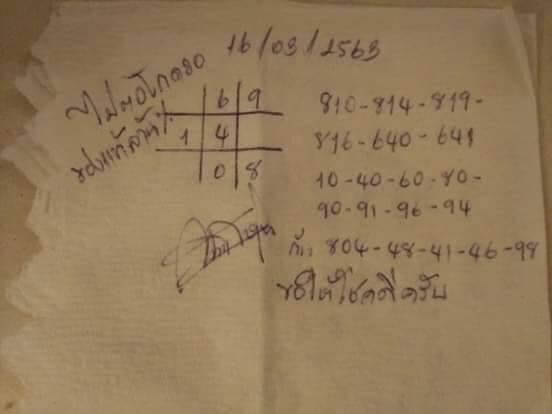 16/03/2563
ไม่ต้องโกดลอ
ของแท้ล้าน%
6 9
1 4
0 8
810-814-819-
816-640-641
10-40-60-80-
90-91-96-94
804-48-41-46-98
ขอให้โชคดีครับ